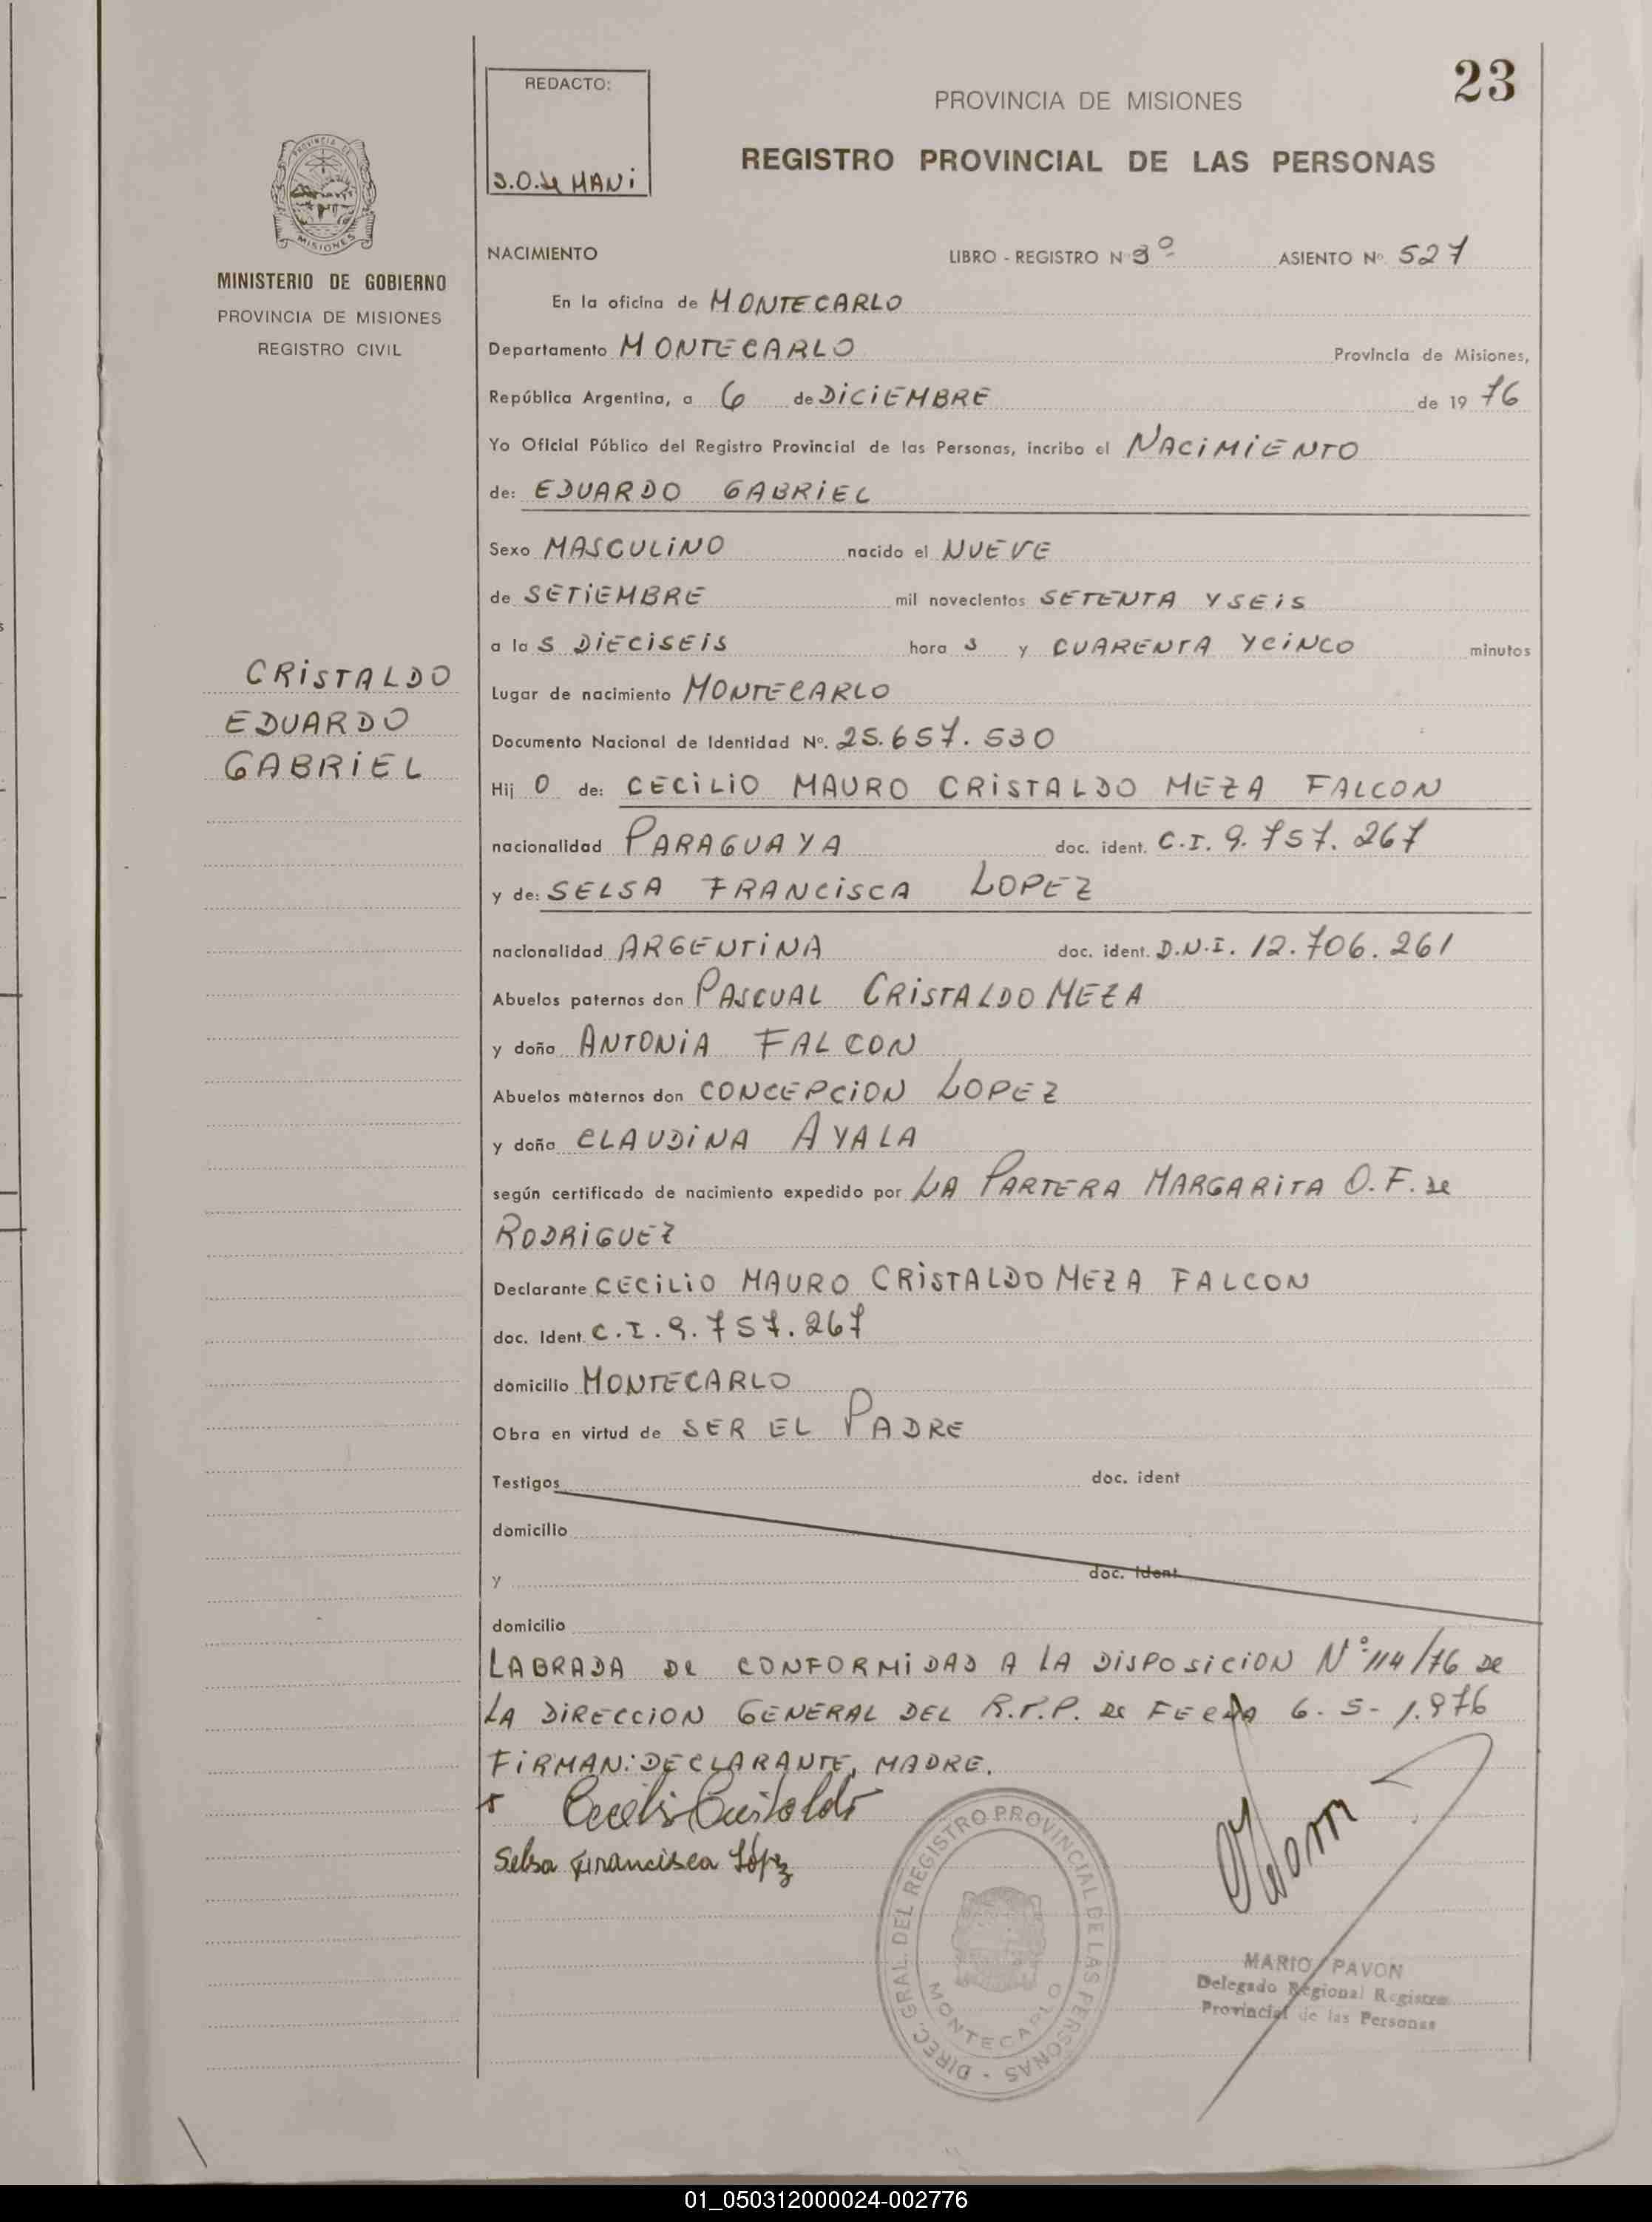 23
REDACTO:
PROVINCIA DE MISIONES
REGISTRO PROVINCIAL DE LAS PERSONAS
PROVINCIA DE
MISIONES
MINISTERIO DE GOBIERNO
PROVINCIA DE MISIONES
REGISTRO CIVIL
NACIMIENTO LIBRO - REGISTRO N 3º ASIENTO Nº 527
En la oficina de MONTECARLO
Departamento MONTECARLO Provincia de Misiones,
República Argentina, a 6 de DICIEMBRE de 19 76
Yo Oficial Público del Registro Provincial de las Personas, incribo el NACIMIENTO
de: EDUARDO GABRIEL
Sexo MASCULINO nacido el NUEVE
de SETIEMBRE mil novecientos SETENTA Y SEIS
a la S DIECISEIS hora S y CUARENTA Y CINCO minutos
CRISTALDO
EDUARDO
GABRIEL
Lugar de nacimiento MONTECARLO
Documento Nacional de Identidad Nº. 25.657.530
Hij O de: CECILIO MAURO CRISTALDO MEZA FALCON
nacionalidad PARAGUAYA doc. ident. C.I. 9.757.267
y de: SELSA FRANCISCA LOPEZ
nacionalidad ARGENTINA doc. ident. D.N.I. 12.706.261
Abuelos paternos don PASCUAL CRISTALDO MEZA
y doña ANTONIA FALCON
Abuelos maternos don CONCEPCION LOPEZ
y doña CLAUDINA AYALA
según certificado de nacimiento expedido por LA PARTERA MARGARITA O.F. de
RODRIGUEZ
Declarante CECILIO MAURO CRISTALDO MEZA FALCON
doc. Ident. C.I. 9.757.267
domicilio MONTECARLO
Obra en virtud de SER EL PADRE
Testigos doc. ident
domicilio
y doc. ident
domicilio
LABRADA DE CONFORMIDAD A LA DISPOSICION Nº 114/76 DE
LA DIRECCION GENERAL DEL R.P.P. DE FECHA 6-5-1.976
FIRMAN: DECLARANTE, MADRE.
Cecilio Cristaldo
Selsa Francisca López
DIREC. GRAL. DEL REGISTRO PROVINCIAL DE LAS PERSONAS -
MONTECARLO
MARIO PAVON
Delegado Regional Registro
Provincial de las Personas
01_050312000024-002776